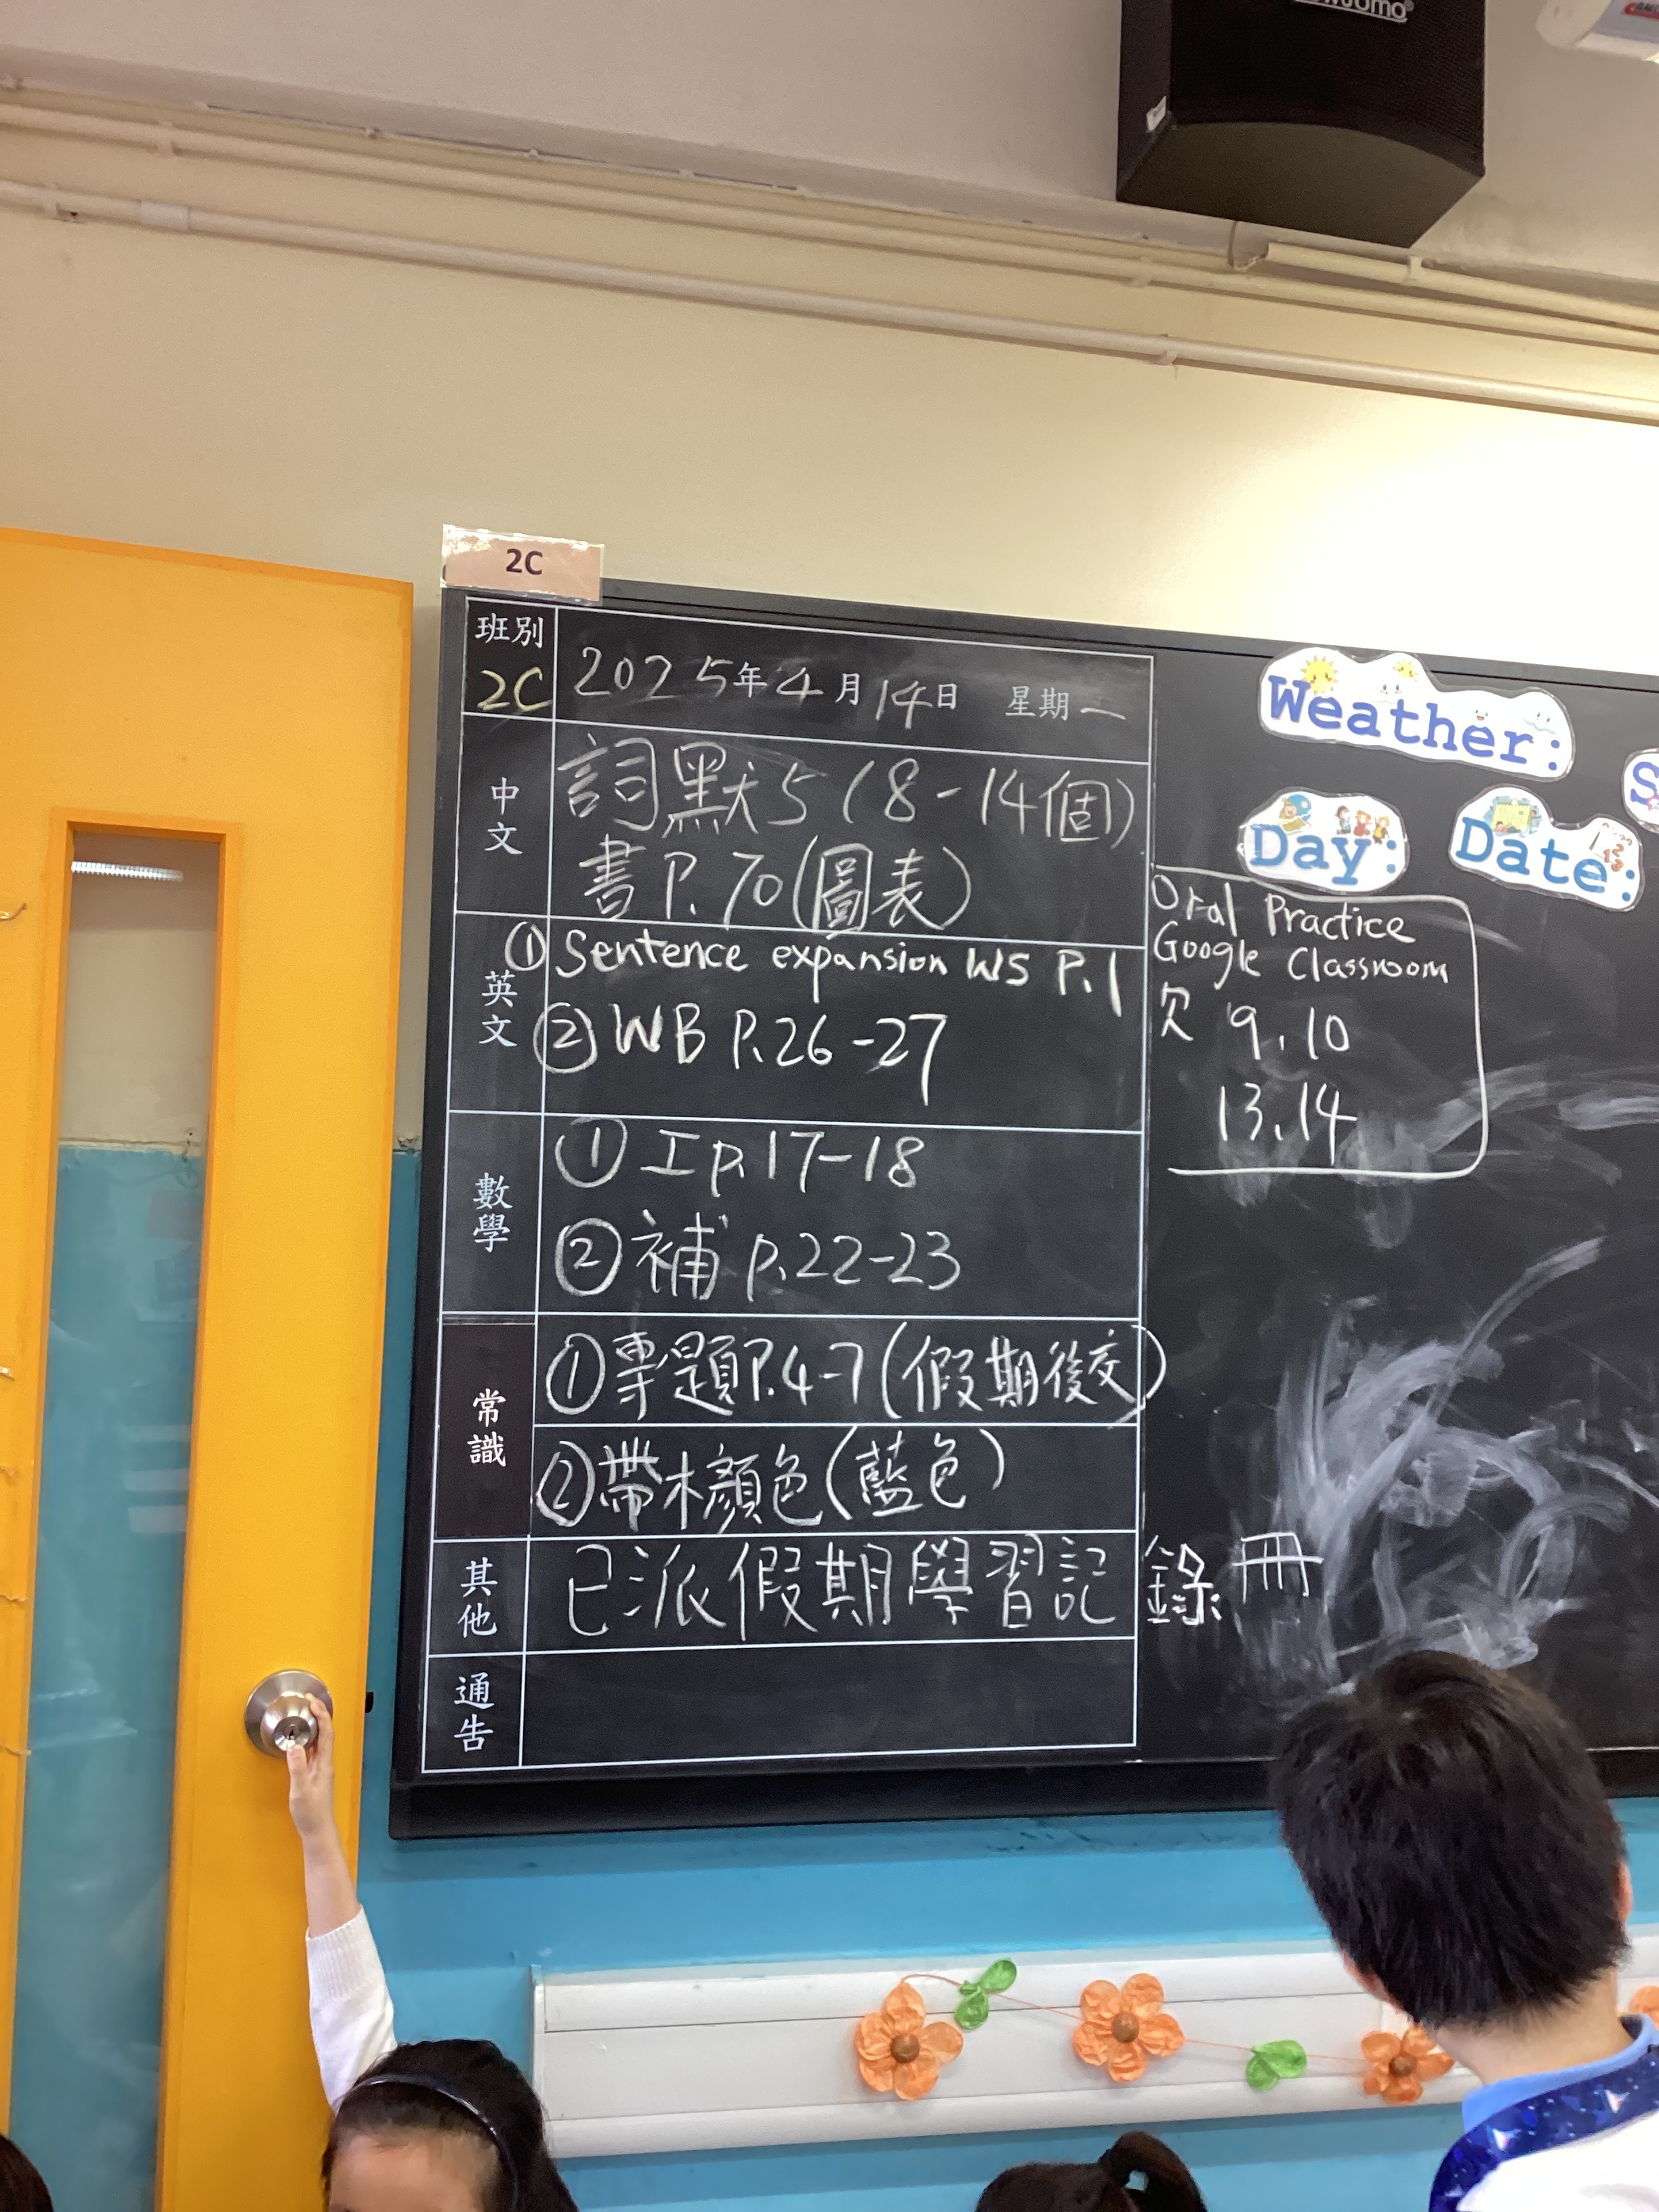 2C
班別
2C
2025年4月14日 星期一
中文
詞默5(8-14個)
書P.70(圖表)
英文
① Sentence expansion WS P.1
② WB P.26-27
數學
① 工p.17-18
② 補 p.22-23
常識
①專題P.4-7(假期後交)
②帶木顏色(藍色)
其他
已派假期學習記錄冊
通告
Weather:
Day:
Date:
Oral Practice
Google Classroom
欠 9.10
13.14